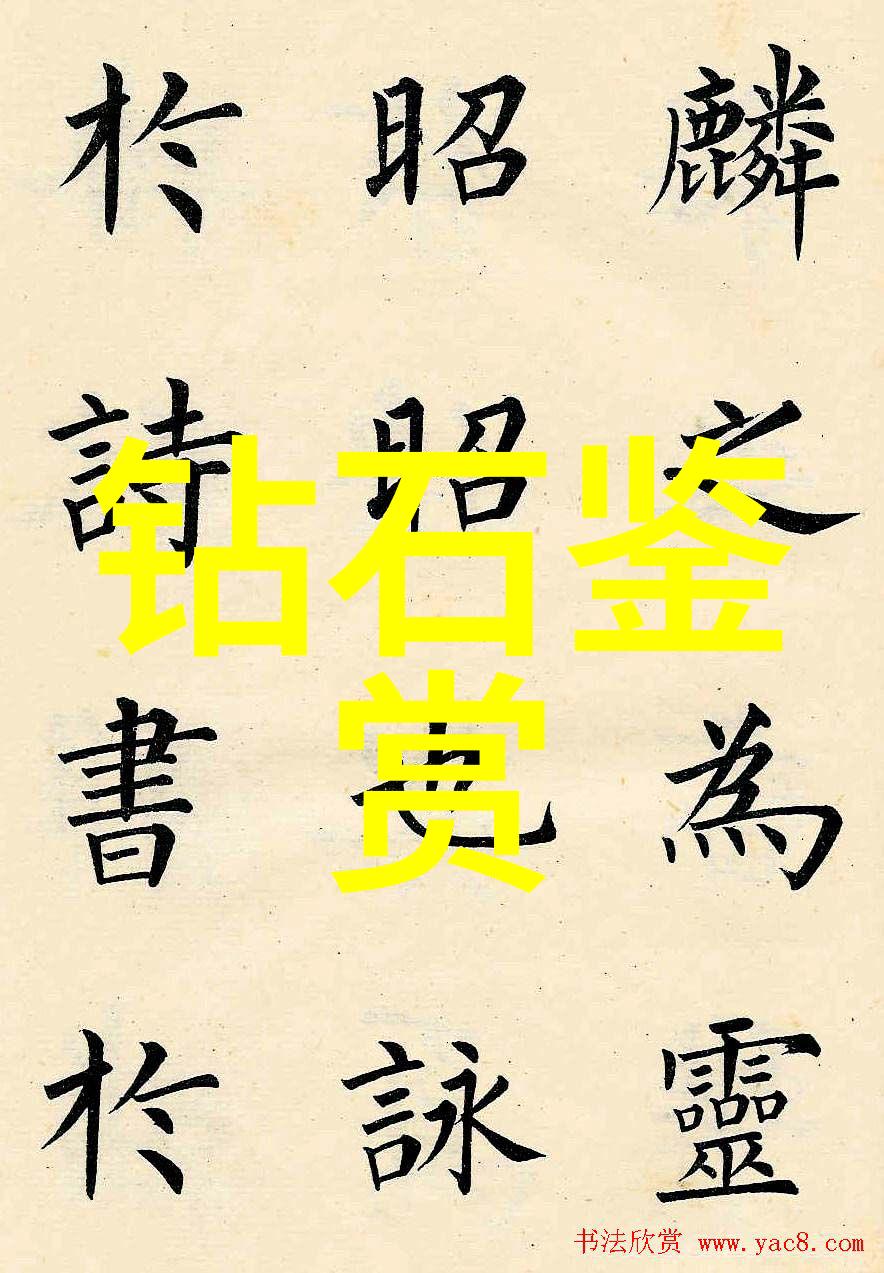 麟之為靈
昭昭也詠
於詩書於
钻石鉴
赏
书法欣赏 www.yac8.com